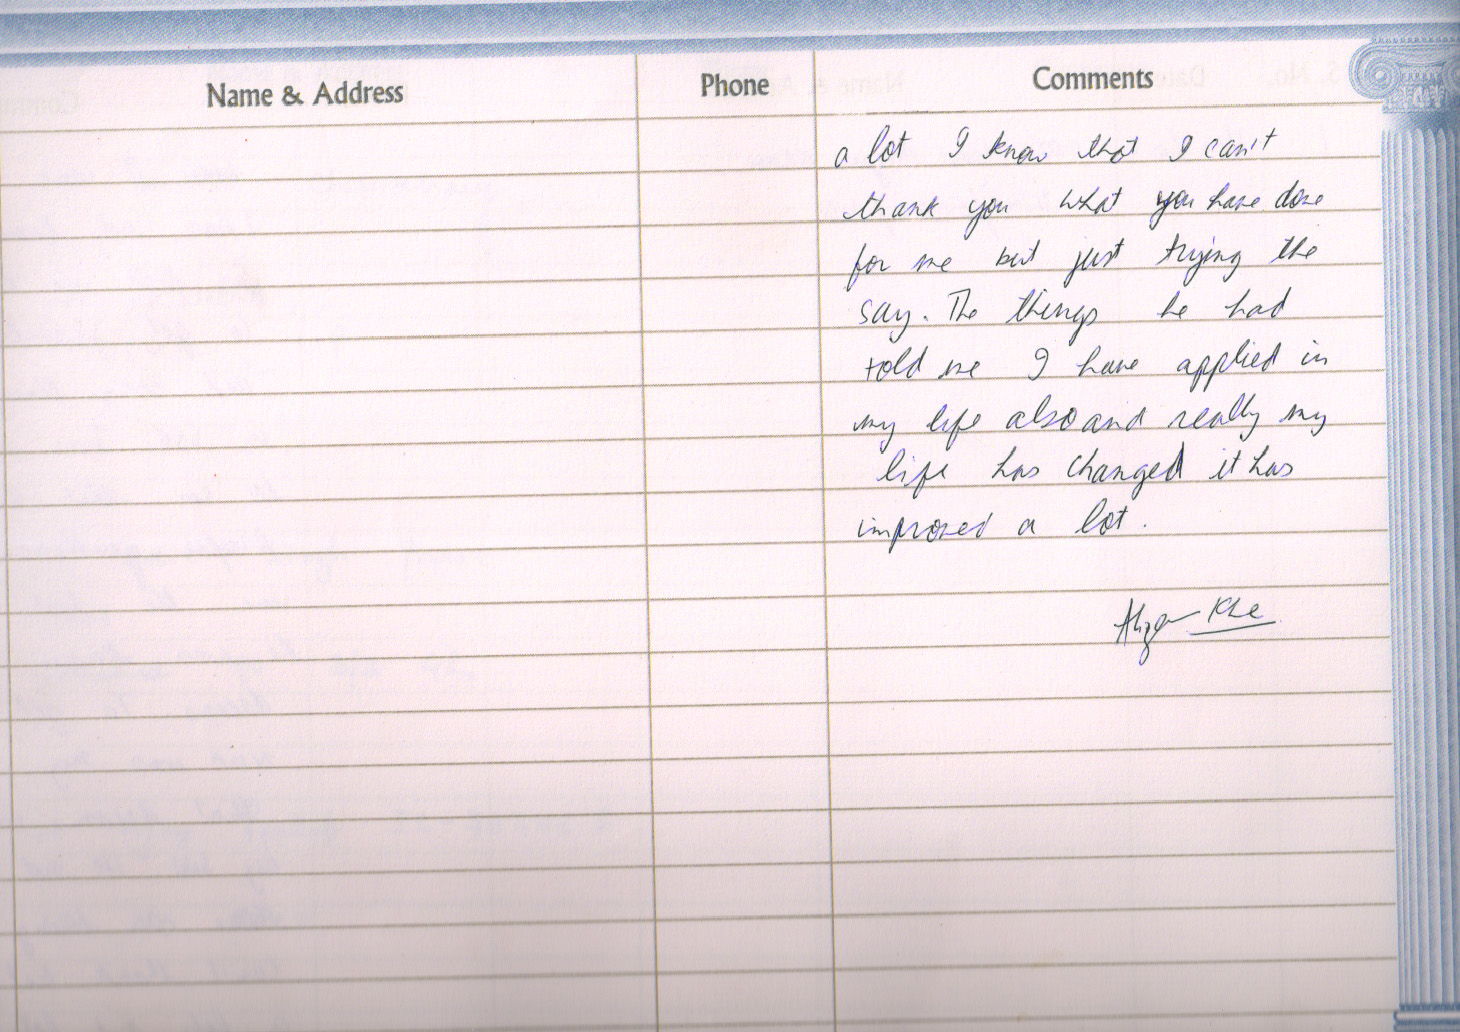 Name & Address Phone Comments
a lot I know that I can't
thank you what you have done
for me but just trying the
say. The things he had
told me I have applied in
my life also and really my
life has changed it has
improved a lot.